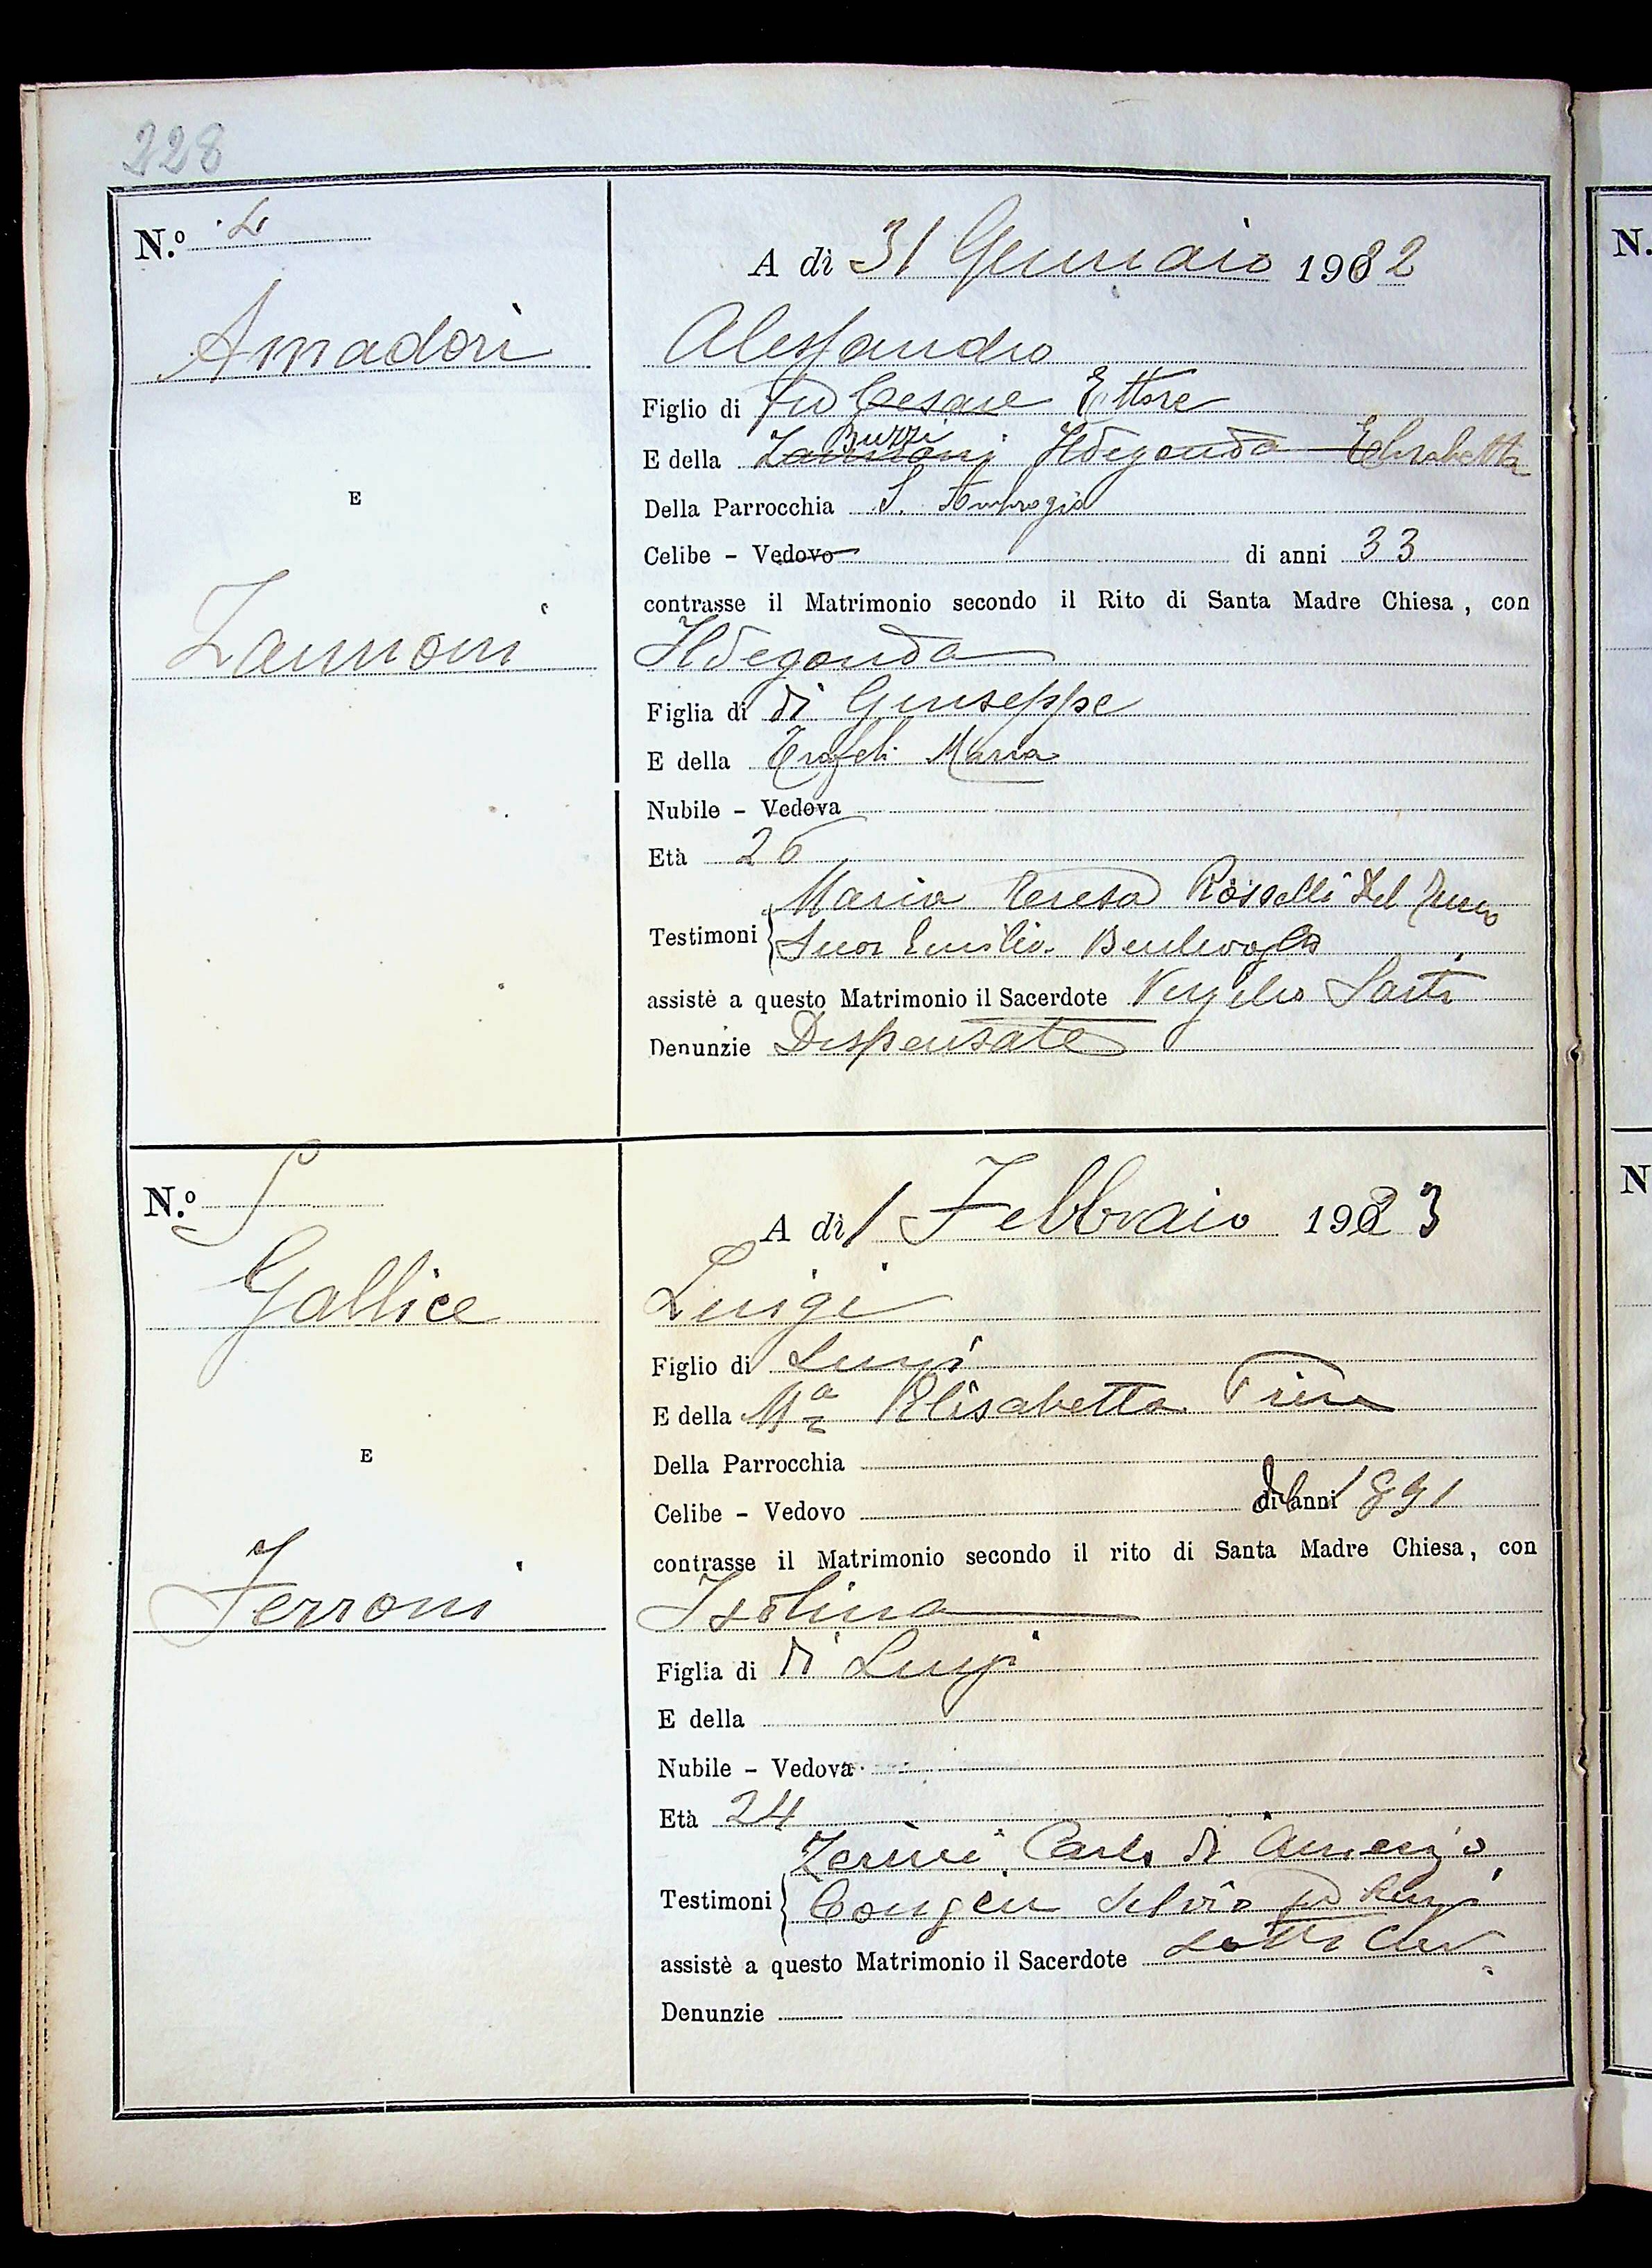 228
N.º 4
A dì 31 Gennaio 1922
Amadori
Alessandro
Figlio di fu Cesare Ettore
Buzzi
E della Zannoni Ildegonda Elisabetta
E
Della Parrocchia S. Ambrogio
Celibe - Vedovo di anni 33
contrasse il Matrimonio secondo il Rito di Santa Madre Chiesa, con
Zannoni
Ildegonda
Figlia di di Giuseppe
E della Maria
Nubile - Vedova
Età 26
Maria Teresa Rosselli Del
Testimoni
Suor Emilia Bentivoglio
assistè a questo Matrimonio il Sacerdote Vergilio Sarti
Denunzie Dispensate
N.º 5
A dì 1 Febbraio 1923
Gallice
Luigi
Figlio di Luigi
E della Mª Elisabetta
E
Della Parrocchia
Celibe - Vedovo di anni 1891
contrasse il Matrimonio secondo il rito di Santa Madre Chiesa, con
Ferroni
Isolina
Figlia di di Luigi
E della
Nubile - Vedova
Età 24
Carlo di
Testimoni
Silvio fu Luigi
assistè a questo Matrimonio il Sacerdote
Denunzie